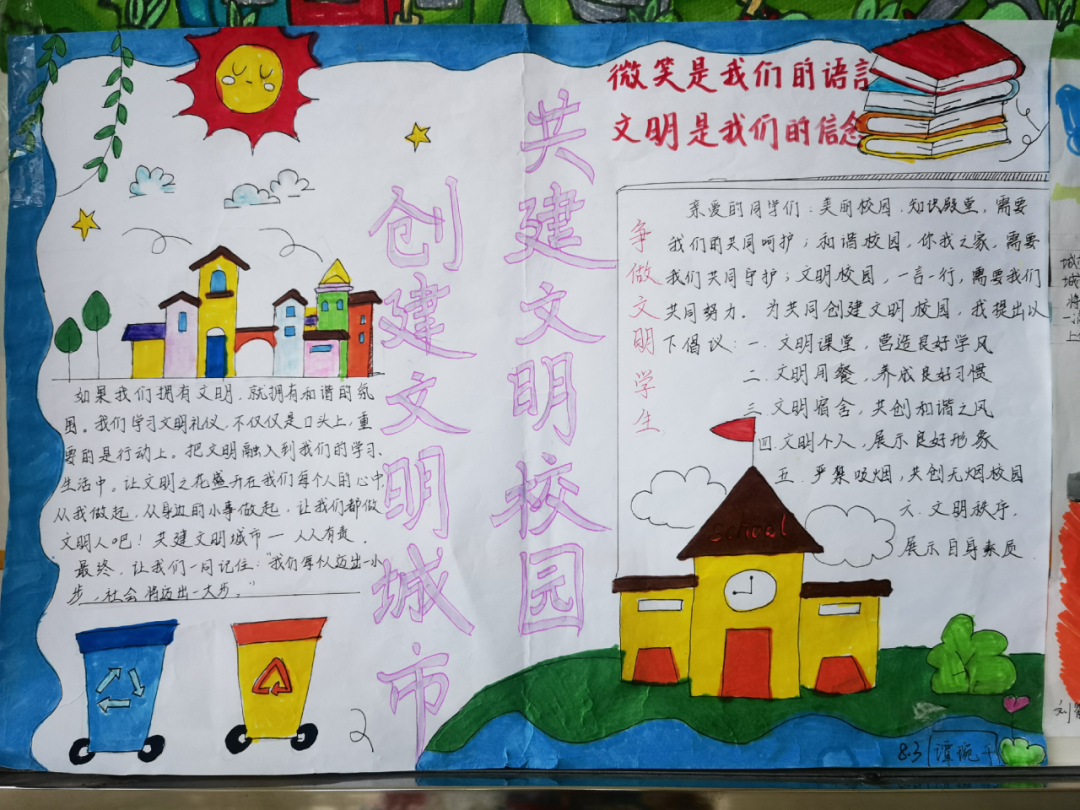 微笑是我们的语言
文明是我们的信念
共建文明校园
创建文明城市
如果我们拥有文明,就拥有和谐的氛
围。我们学习文明礼仪,不仅仅是口头上,重
要的是行动上。把文明融入到我们的学习、
生活中。让文明之花盛开在我们每个人的心中,
从我做起,从身边的小事做起,让我们都做
文明人吧!共建文明城市一人人有责。
最终,让我们一同记住:"我们每人迈出一小
步,社会将迈出一大步。"
争做文明学生
亲爱的同学们:美丽校园,知识殿堂,需要
我们的共同呵护;和谐校园,你我之家,需要
我们共同守护;文明校园,一言一行,需要我们
共同努力。为共同创建文明校园,我提出以
下倡议:一.文明课堂,营造良好学风
二.文明用餐,养成良好习惯
三.文明宿舍,共创和谐之风
四.文明个人,展示良好形象
五.严禁吸烟,共创无烟校园
六.文明秩序,
展示自身素质
School
8.3